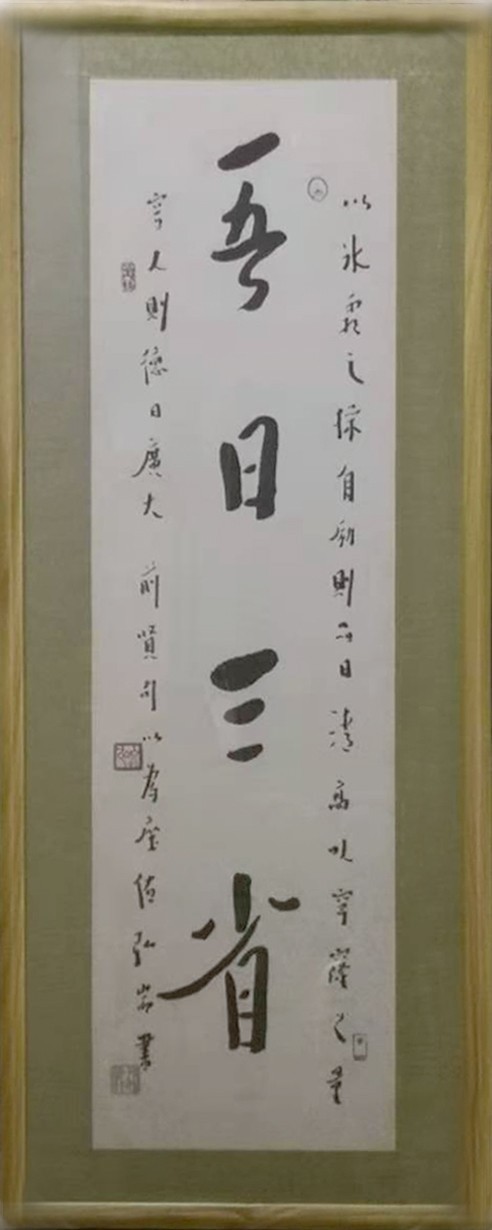 以冰霜之操自勵則品日清高以穹窿之量
吾日三省
容人則德日廣大 前賢句以為座弘書